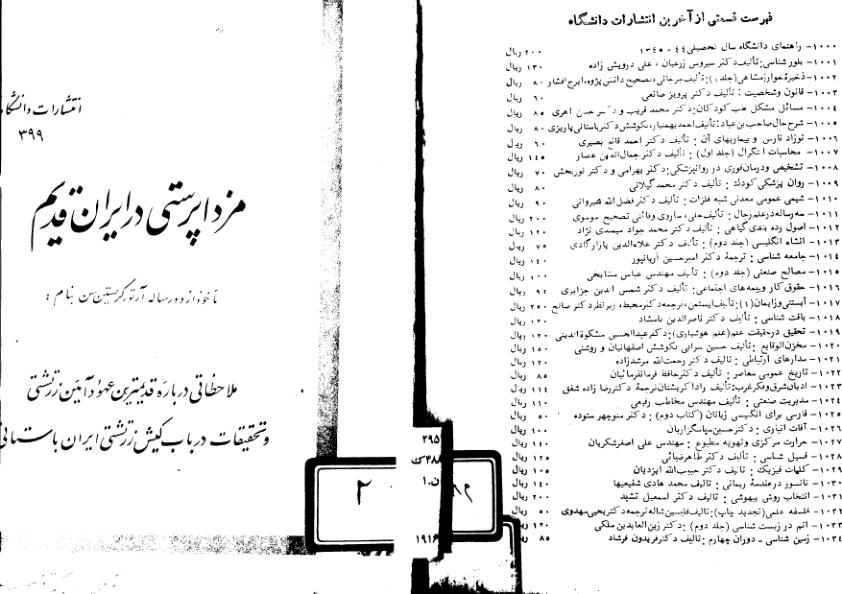 فهرست قسمتی از آخرین انتشارات دانشگاه
۱۰۰۰- راهنمای دانشگاه سال تحصیلی ۴۴-۱۳۴۵ ۲۰۰ ریال
۱۰۰۱- بلورشناسی: تألیف دکتر سیروس زرعیان، علی درویش زاده ۱۳۰ ریال
۱۰۰۲- ذخیرهٔ خوارزمشاهی (جلد ۱): تألیف جرجانی، تصحیح دانش پژوه، ایرج افشار ۸۰ ریال
۱۰۰۳- قانون وشخصیت: تألیف دکتر پرویز صانعی ۶۰ ریال
۱۰۰۴- مسائل مشکل طب کودکان: دکتر محمد قریب و دکتر حسن اهری ۸۵ ریال
۱۰۰۵- شرح حال صاحب بن عباد: تألیف احمد بهمنیار، بکوشش دکتر باستانی پاریزی ۸۰ ریال
۱۰۰۶- نوزاد نارس و بیماریهای آن: تألیف دکتر احمد قانع بصیری ۶۰ ریال
۱۰۰۷- محاسبات انتگرال (جلد اول): تألیف دکتر جمال الدین عصار ۱۴۵ ریال
۱۰۰۸- تشخیص ودرمان فوری در روانپزشکی: دکتر بهرامی و دکتر نوربخش ۷۰ ریال
۱۰۰۹- روان پزشکی کودک: تألیف دکتر محمد گیلانی ۸۰ ریال
۱۰۱۰- شیمی عمومی معدنی شبه فلزات: تألیف دکتر فضل الله شیروانی ۹۰ ریال
۱۰۱۱- سه رساله در علم رجال: تألیف علی ساروی وفائی تصحیح موسوی ۲۰۰ ریال
۱۰۱۲- اصول رده بندی گیاهی: تألیف دکتر محمد جواد میمندی نژاد ۱۲۰ ریال
۱۰۱۳- انشاء انگلیسی (جلد دوم): تألیف دکتر علاءالدین پازارگادی ۷۵ ریال
۱۰۱۴- جامعه شناسی: ترجمهٔ دکتر امیرحسین آریانپور ۱۴۰ ریال
۱۰۱۵- مصالح صنعتی (جلد دوم): تألیف مهندس عباس مشایخی ۱۰۰ ریال
۱۰۱۶- حقوق کار وبیمه های اجتماعی: تألیف دکتر شمس الدین جزایری ۹۲ ریال
۱۰۱۷- آبستنی وزایمان (۱): تألیف ایستمن، ترجمه دکتر محیط، زیرنظر دکتر صالح ۲۵۰ ریال
۱۰۱۸- بافت شناسی: تألیف دکتر ناصرالدین بامشاد ۱۲۰ ریال
۱۰۱۹- تحقیق در حقیقت علم (علم هوشیاری): دکتر عبدالحسین مشکوةالدینی ۱۲۰ ریال
۱۰۲۰- مخزن الوقایع: تألیف حسین سرابی بکوشش اصفهانیان و روشنی ۱۵۰ ریال
۱۰۲۱- مدارهای ارتباطی: تألیف دکتر رحمت الله مرشدزاده ۱۲۰ ریال
۱۰۲۲- تاریخ عمومی معاصر: تألیف دکتر حافظ فرمانفرمائیان ۸۵ ریال
۱۰۲۳- ادیان شرق وفکر غرب: تألیف راداکریشنان ترجمهٔ دکتر رضا زاده شفق ۱۱۴ ریال
۱۰۲۴- مدیریت صنعتی: تألیف مهندس مخاطب رفیعی ۱۱۰ ریال
۱۰۲۵- فارسی برای انگلیسی زبانان (کتاب دوم): دکتر منوچهر ستوده ۵۰ ریال
۱۰۲۶- آفات انباری: دکتر حسین سپاسگزاریان ۱۰۰ ریال
۱۰۲۷- حرارت مرکزی وتهویه مطبوع: مهندس علی اصغر شکریان ۱۴۰ ریال
۱۰۲۸- فسیل شناسی: تألیف دکتر طاهر ضیائی ۱۲۵ ریال
۱۰۲۹- کلیات فیزیک: تألیف دکتر حبیب الله ایزدیان ۱۰۵ ریال
۱۰۳۰- تانسور در هندسهٔ ریمانی: تألیف محمد هادی شفیعیها ۱۴۰ ریال
۱۰۳۱- انتخاب روش بیهوشی: تألیف دکتر اسمعیل تشید ۲۰۰ ریال
۱۰۳۲- فلسفه علمی (تجدید چاپ): تألیف فلیسین شاله ترجمه دکتر یحیی مهدوی ۵۰ ریال
۱۰۳۳- اتم در زیست شناسی (جلد دوم): دکتر زین العابدین ملکی ۱۲۰ ریال
۱۰۳۴- زمین شناسی - دوران چهارم: تألیف دکتر فریدون فرشاد ۸۵ ریال
انتشارات دانشگاه
۳۹۹
مزداپرستی در ایران قدیم
مأخوذ از دو رساله آرتور کریستن سن بنام:
ملاحظاتی درباره قدیمترین عهود آئین زرتشتی
وتحقیقات در باب کیش زرتشتی ایران باستانی
۲۹۵
ک۴۸۸
ن.۱
۲
۱۹۱۶